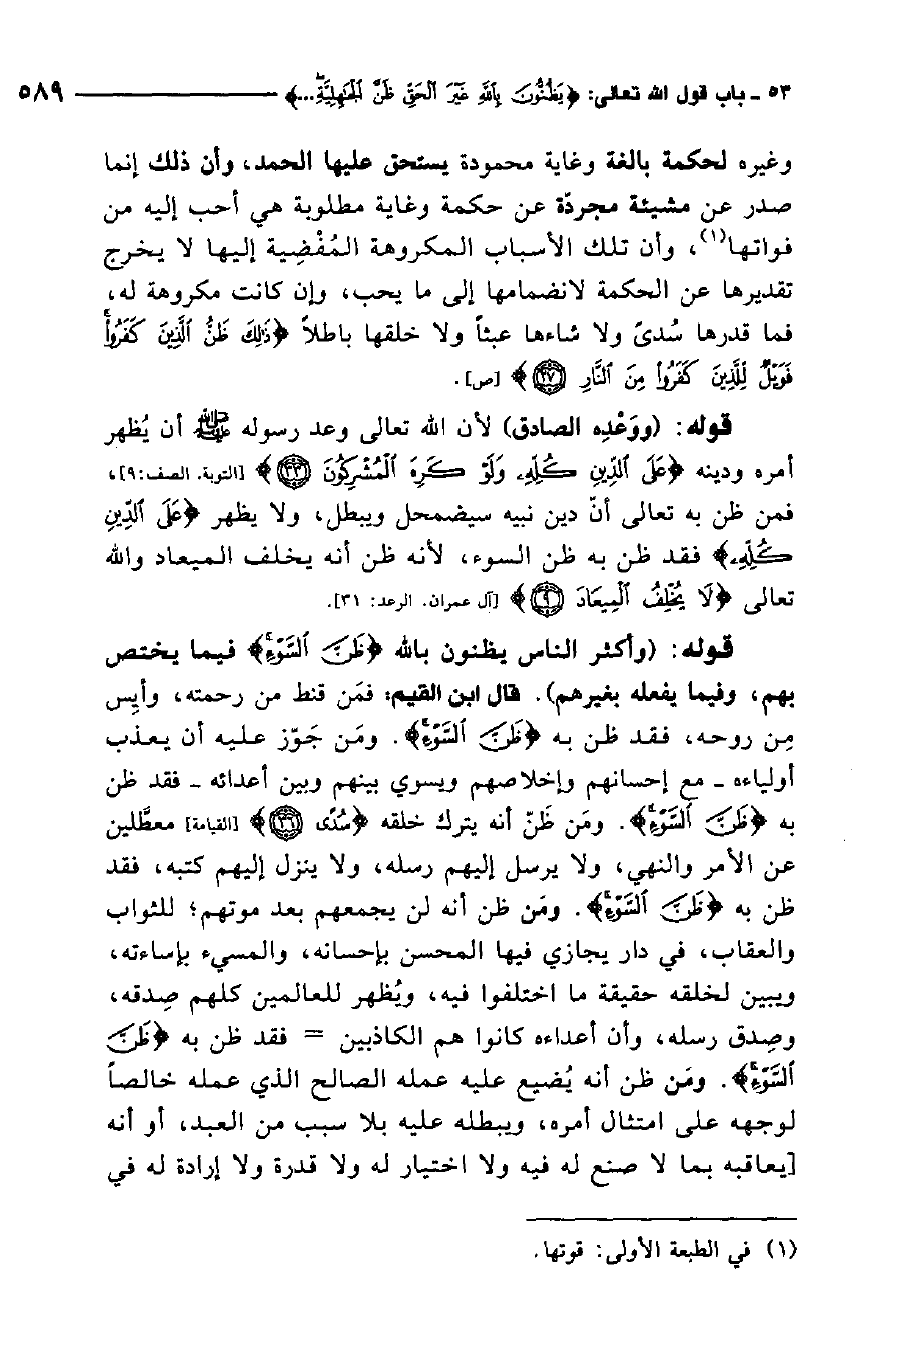 ٥٣ ـ باب قول الله تعالى: ﴿يَظُنُّونَ بِاللَّهِ غَيْرَ الْحَقِّ ظَنَّ الْجَاهِلِيَّةِ...﴾ ٥٨٩
وغيره لحكمة بالغة وغاية محمودة يستحق عليها الحمد، وأن ذلك إنما
صدر عن مشيئة مجردّة عن حكمة وغاية مطلوبة هي أحب إليه من
فواتها(١)، وأن تلك الأسباب المكروهة المُفْضِية إليها لا يخرج
تقديرها عن الحكمة لانضمامها إلى ما يحب، وإن كانت مكروهة له،
فما قدرها سُدىً ولا شاءها عبثاً ولا خلقها باطلاً ﴿ذَلِكَ ظَنُّ الَّذِينَ كَفَرُوا
فَوَيْلٌ لِلَّذِينَ كَفَرُوا مِنَ النَّارِ ﴿٢٧﴾﴾ [ص].
قوله: (ووَعْدِه الصادق) لأن الله تعالى وعد رسوله ﷺ أن يُظهر
أمره ودينه ﴿عَلَى الدِّينِ كُلِّهِ وَلَوْ كَرِهَ الْمُشْرِكُونَ ﴿٣٣﴾﴾ [التوبة، الصف: ٩]،
فمن ظن به تعالى أنّ دين نبيه سيضمحل ويبطل، ولا يظهر ﴿عَلَى الدِّينِ
كُلِّهِ﴾ فقد ظن به ظن السوء، لأنه ظن أنه يخلف الميعاد والله
تعالى ﴿لَا يُخْلِفُ الْمِيعَادَ ﴿٩﴾﴾ [آل عمران، الرعد: ٣١].
قوله: (وأكثر الناس يظنون بالله ﴿ظَنَّ السَّوْءِ﴾ فيما يختص
بهم، وفيما يفعله بغيرهم). قال ابن القيم: فمَن قنط من رحمته، وأيِس
مِن روحه، فقد ظن به ﴿ظَنَّ السَّوْءِ﴾. ومَن جَوّز عليه أن يعذب
أولياءه ـ مع إحسانهم وإخلاصهم ويسري بينهم وبين أعدائه ـ فقد ظن
به ﴿ظَنَّ السَّوْءِ﴾. ومَن ظَنّ أنه يترك خلقه ﴿سُدًى ﴿٣٦﴾﴾ [القيامة] معطَّلين
عن الأمر والنهي، ولا يرسل إليهم رسله، ولا ينزل إليهم كتبه، فقد
ظن به ﴿ظَنَّ السَّوْءِ﴾. ومَن ظن أنه لن يجمعهم بعد موتهم؛ للثواب
والعقاب، في دار يجازي فيها المحسن بإحسانه، والمسيء بإساءته،
ويبين لخلقه حقيقة ما اختلفوا فيه، ويُظهر للعالمين كلهم صِدقه،
وصِدق رسله، وأن أعداءه كانوا هم الكاذبين = فقد ظن به ﴿ظَنَّ
السَّوْءِ﴾. ومَن ظن أنه يُضيع عليه عمله الصالح الذي عمله خالصاً
لوجهه على امتثال أمره، ويبطله عليه بلا سبب من العبد، أو أنه
[يعاقبه بما لا صنع له فيه ولا اختيار له ولا قدرة ولا إرادة له في
(١) في الطبعة الأولى: قوتها.